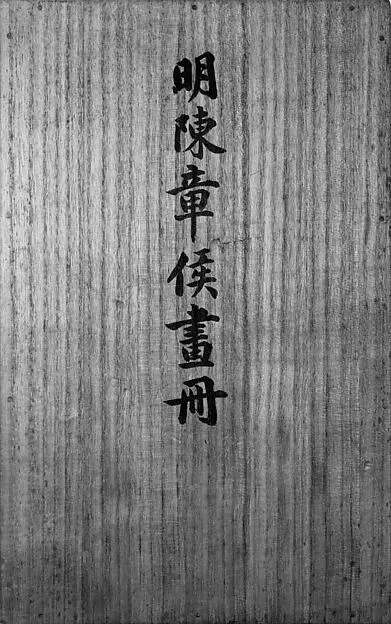 明陳章侯畫冊